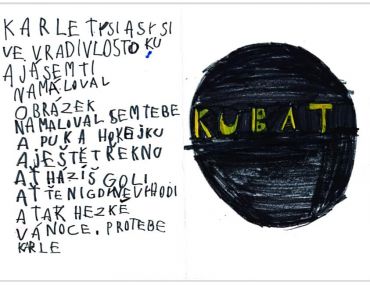 KARLE TY SI ASY SI
VE VRADIVLOSTO KU
A JÁ SEM TI
NAMALOVAL
OBRÁZEK
NAMALOVAL SEM TEBE
A PUKA HOKEJKU
A JEŠTĚ TĚ REKNO
AŤ HAZÍŠ GOLI
AŤ TĚ NIGDI NEVIHODI
A TAK HEZKÉ
VÁNOCE. PROTEBE
KARLE
KUBAT